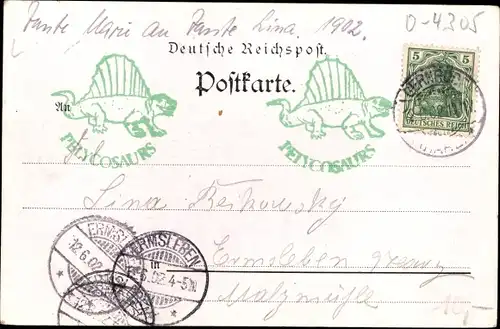 Tante Marie an Tante Lina. 1902.
0-4305
Deutsche Reichspost.
Postkarte.
5 5
DEUTSCHES REICH
An
PELYCOSAURS
PELYCOSAURS
Lina
Ermsleben
Malzmühle
10,-
ERMSL
12.6.02
ERMSLEBEN
02.4-5N